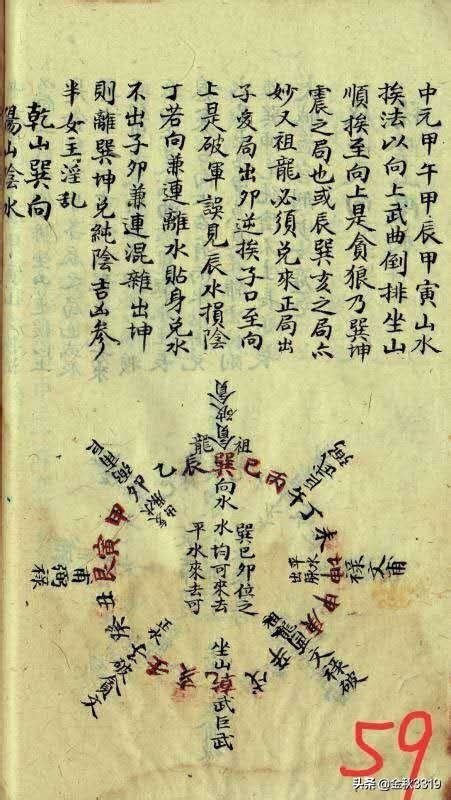 中元甲午甲辰甲寅山水
挨法以向上武曲倒排坐山
順挨至向上是貪狼乃巽坤
震之局也或辰巽亥之局亦
妙又祖龍必須兑來正局出
子癸局出卯逆挨子口至向
上是破軍誤見辰水損陰
丁若向兼連離水貼身兑水
不出子卯兼連混雜出坤
則離巽坤兑純陰吉凶参
半女主淫乱
乾山巽向
陽山陰水
祖
龍
巽
巳
丙
午
丁
未
坤
申
庚
酉
辛
戌
乾
亥
壬
子
癸
丑
艮
寅
甲
卯
乙
辰
向水
巽巳卯位之
水均可來去
平水來去可
坐山
武巨武
甫文祿
文祿破
破貪文
甫弼祿
59
头条 @金秋3319